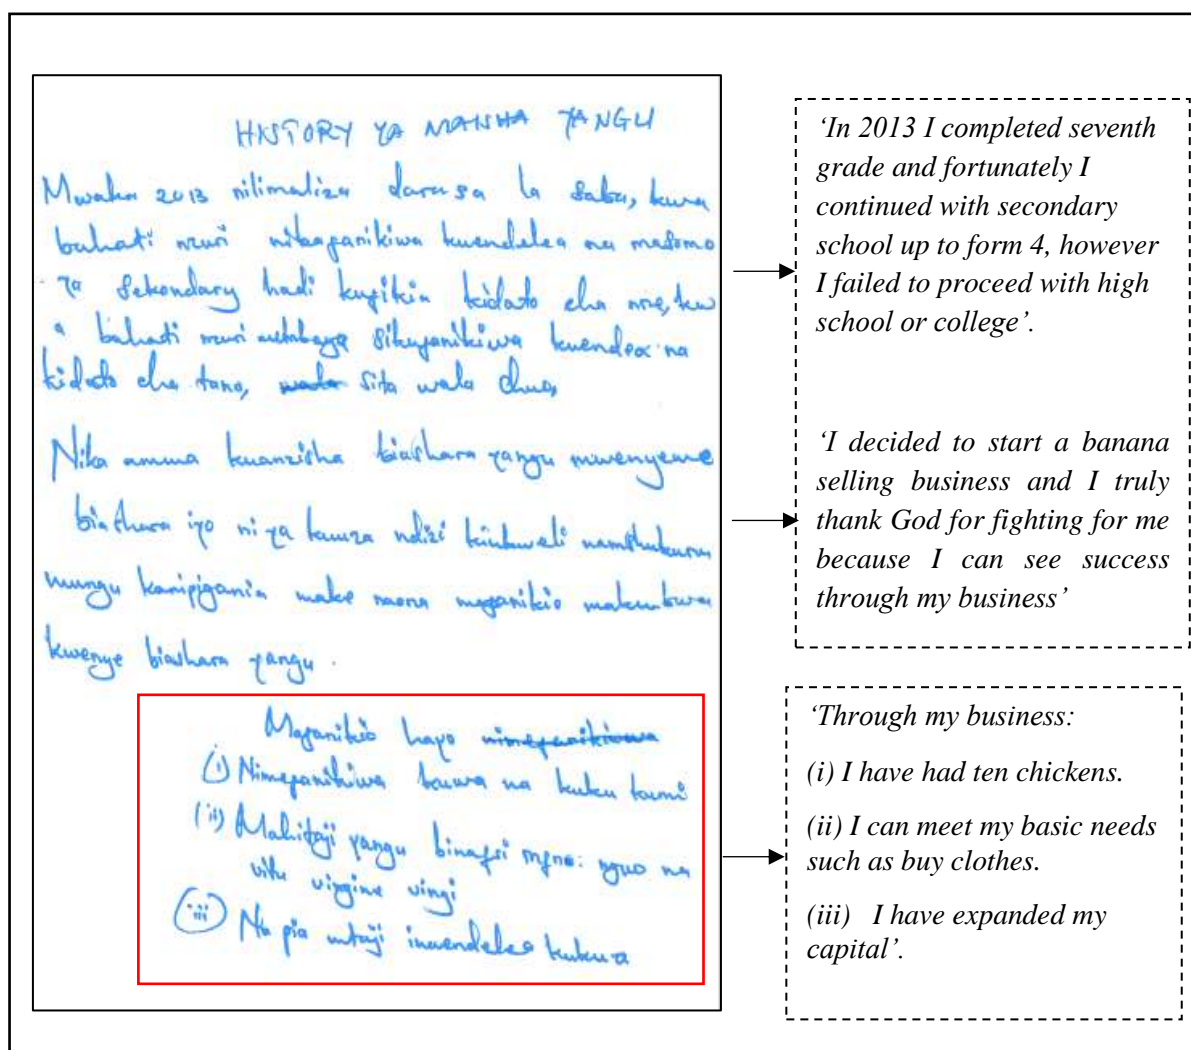 HISTORY YA MAISHA YANGU
Mwaka 2013 nilimaliza darasa la saba, kwa
bahati nzuri nikafanikiwa kuendelea na masomo
ya Sekondary hadi kufikia kidato cha nne, kw
a bahati mbaya sikufanikiwa kuendea na
kidato cha tano, wala sita wala chuo,
Nika amua kuanzisha biashara yangu mwenyewe
biashara iyo ni ya kuuza ndizi kiukweli namshukuru
mungu kanipigania make naona mafanikio makubwa
kwenye biashara yangu.
Mafanikio hayo nimefanikiwa
(i) Nimefanikiwa kuwa na kuku kumi
(ii) Mahitaji yangu binafsi mfno: nguo na
vitu vingine vingi
(iii) Na pia mtaji inaendelea kukua
'In 2013 I completed seventh
grade and fortunately I
continued with secondary
school up to form 4, however
I failed to proceed with high
school or college'.
'I decided to start a banana
selling business and I truly
thank God for fighting for me
because I can see success
through my business'
'Through my business:
(i) I have had ten chickens.
(ii) I can meet my basic needs
such as buy clothes.
(iii) I have expanded my
capital'.